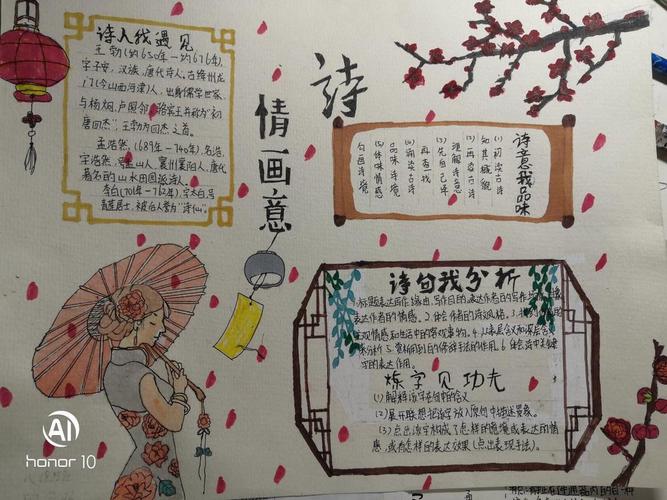 诗人我遇见
王勃(约650年-约676年),
字子安,汉族,唐代诗人。古绛州龙
门(今山西河津)人,出身儒学世家,
与杨炯、卢照邻、骆宾王并称为"初
唐四杰",王勃为四杰之首。
孟浩然,(689年-740年)名浩,
字浩然,号孟山人,襄州襄阳人,唐代
著名的山水田园派诗人。
李白(701年-762年),字太白,号
青莲居士,被后人誉为"诗仙"。
诗
情画意
诗意我品味
(1)初读古诗
知其概貌
(2)再读古诗
理解诗意
(3)先自己译
再查一找
(4)诵读古诗
品味诗境
(5)体味情感
勾画诗境
诗句我分析
表达作者的情感。2.体会作者的诗歌风格。3.
观情感和生活中的客观事物。4.从表层含义和深层含
分析5.赏析用到的修辞手法的作用。6.体会诗中关键
字的表达作用。
炼字见功夫
(1)解释该字在句中的含义
(2)展开联想把该字放入原句中描述景象。
(3)点出该字构成了怎样的意境或表达的情
感,或有怎样的表达效果(点出表现手法)。
AI
honor 10